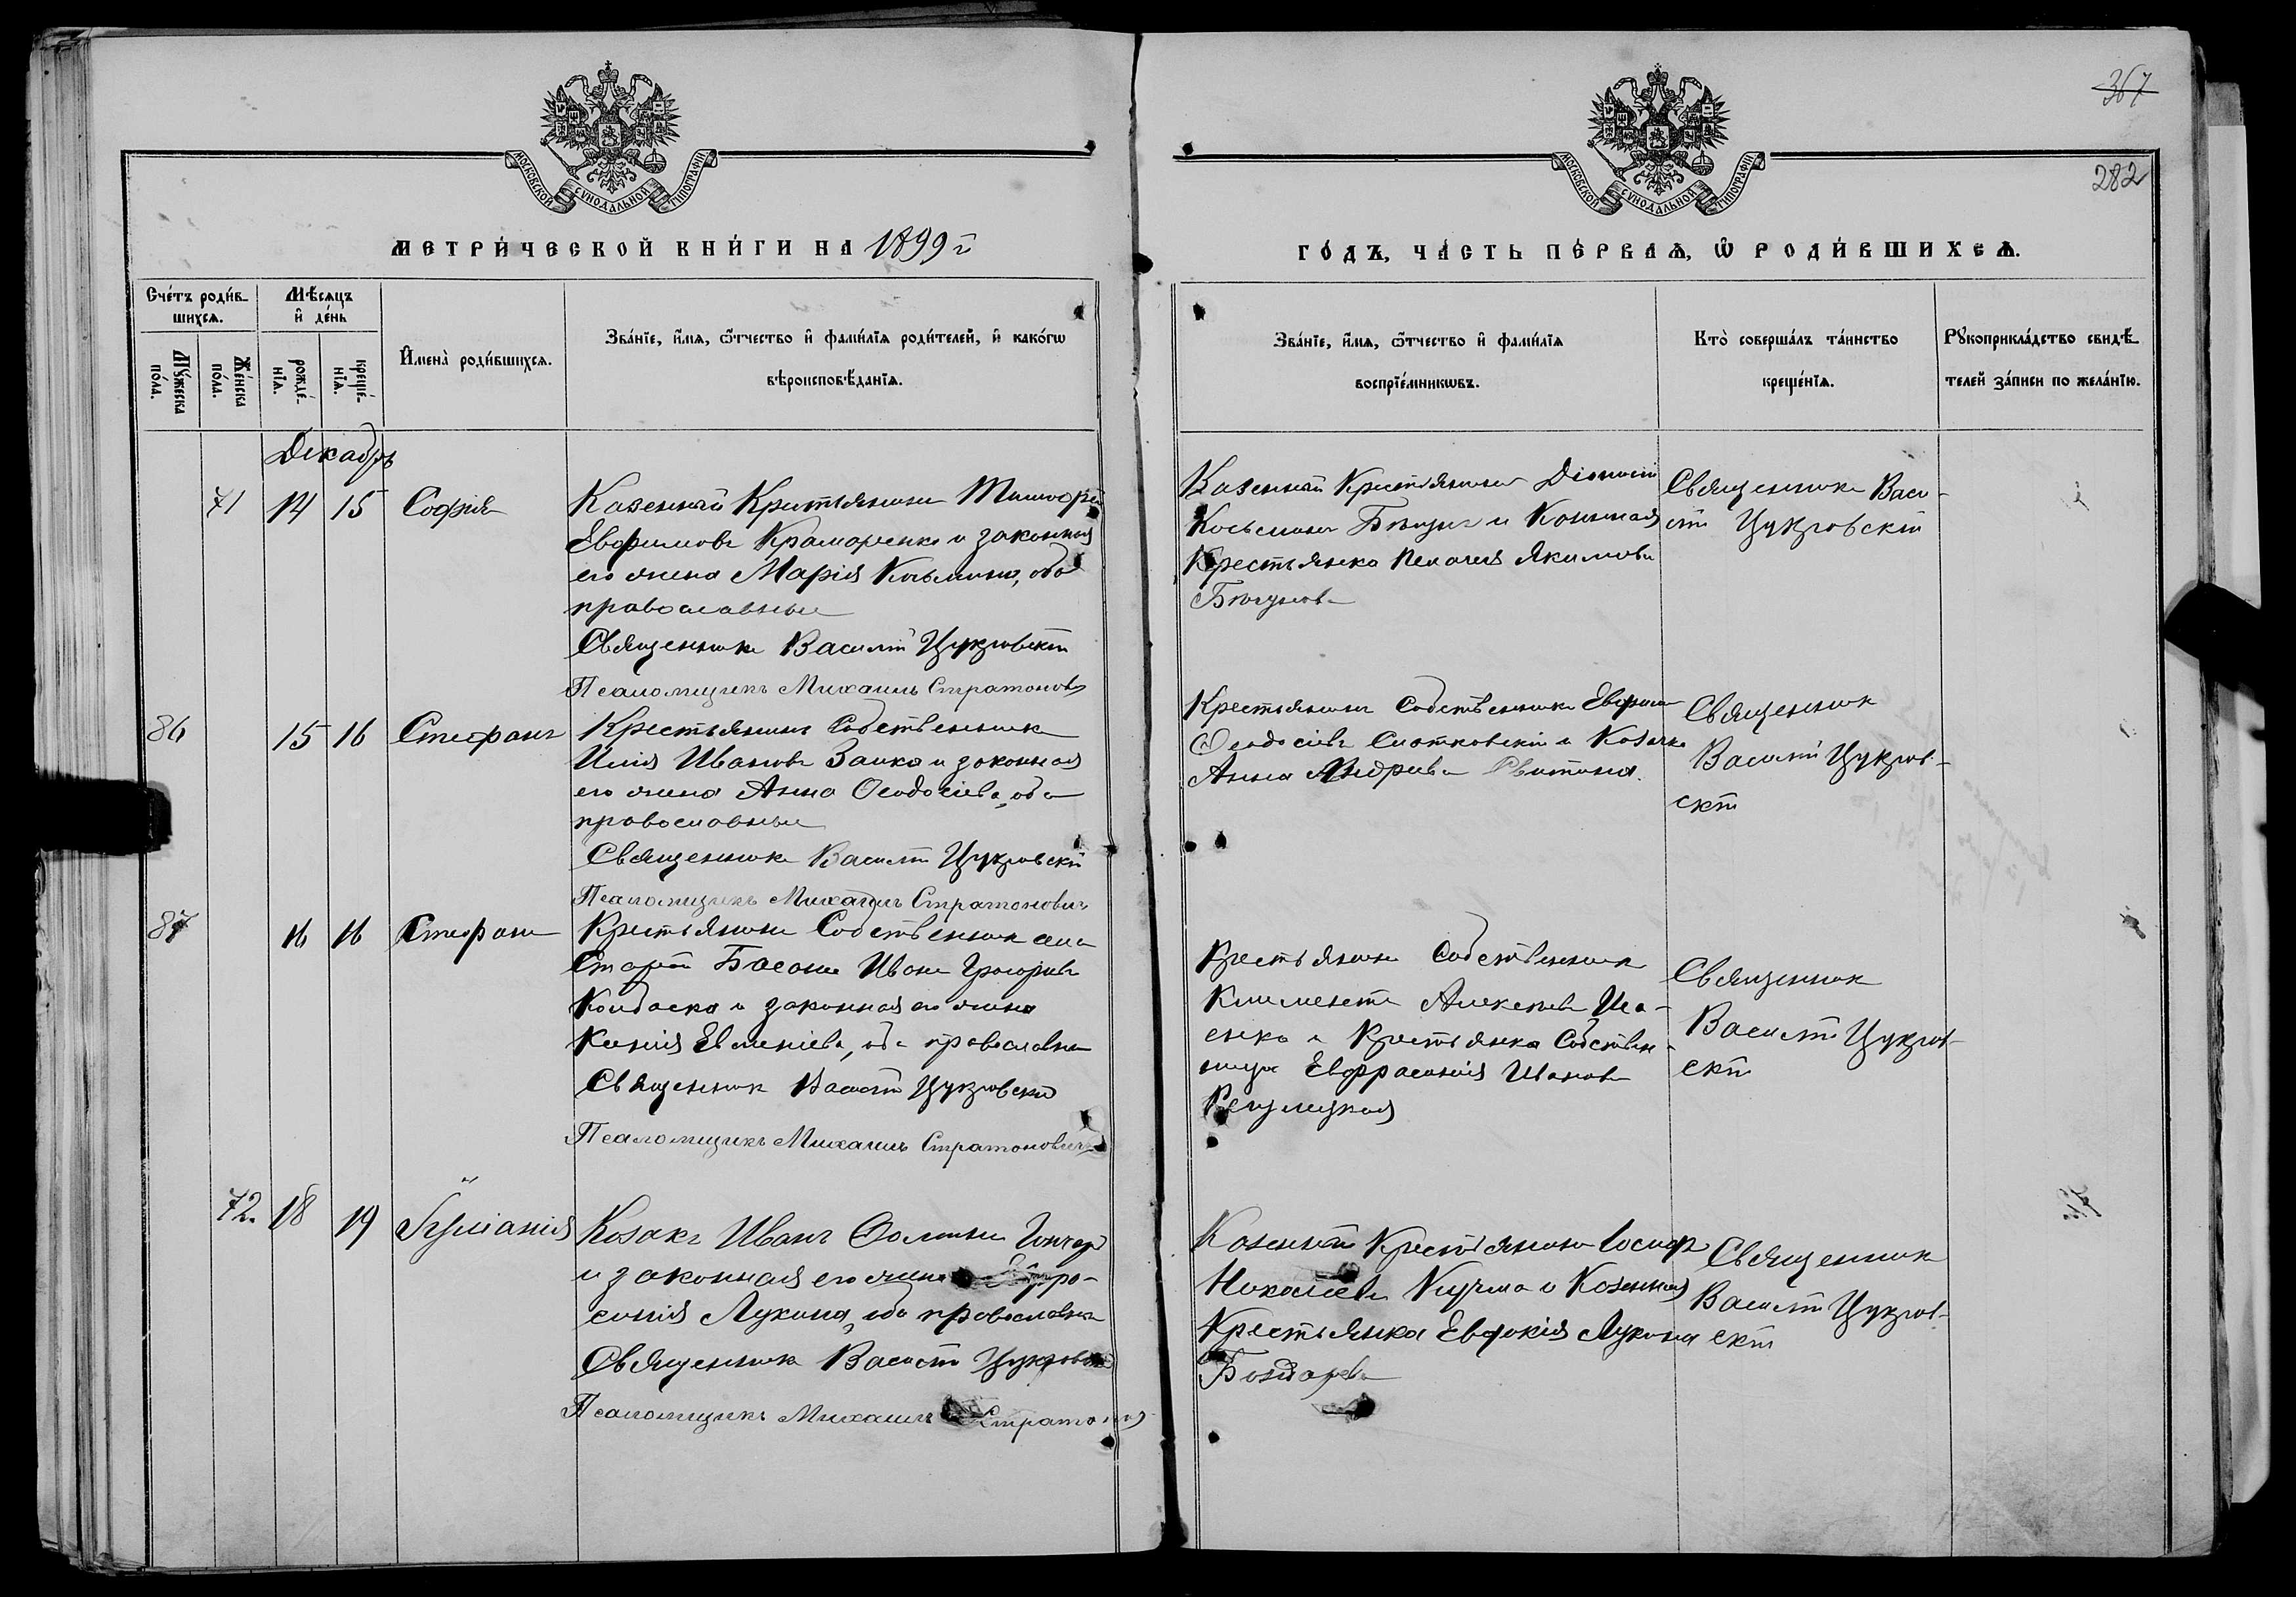 367
282
МОСКОВСКОЙ СУНОДАЛЬНОЙ ТИПОГРАФІИ
МОСКОВСКОЙ СУНОДАЛЬНОЙ ТИПОГРАФІИ
МЕТРИ́ЧЕСКОЙ КНИ́ГИ НА 1899 й
ГО́ДЪ, ЧА́СТЬ ПЕ́РВАѦ, Ѡ РОДИ́ВШИХСѦ.
Сче́тъ роди́в-
шихсѧ.
Мѣ́сѧцъ
и҆ де́нь
Мꙋ́жеска
по́ла.
Же́нска
по́ла.
рожде́-
нїѧ.
креще́-
нїѧ.
И҆мена̀ роди́вшихсѧ.
Зва́нїе, и҆́мѧ, ѻ҆́тчество и҆ фами́лїѧ роди́телей, и҆ како́гѡ
вѣроисповѣ́данїѧ.
Зва́нїе, и҆́мѧ, ѻ҆́тчество и҆ фами́лїѧ
воспрїе́мникѡвъ.
Кто̀ соверша́лъ та́инство
креще́нїѧ.
Рꙋкоприкла́дство свидѣ́-
телей за́писи по жела́нїю.
Декабрь
71 14 15 Софія
Казенный Крестьянинъ Тимофей
Евфимовъ Крамаренко и законная
его жена Марія Косьмина, оба
православные
Священникъ Василій Цукровскій
Псаломщикъ Михаилъ Стратоновъ
Казенный Крестьянинъ Діонисій
Косьминъ и Казенная
Крестьянка Пелагея Якимова
Священникъ Васи-
лій Цукровскій
86 15 16 Стефанъ
Крестьянинъ Собственникъ
Илія Ивановъ Заика и законная
его жена Анна Ѳеодосіева, оба
православные
Священникъ Василій Цукровскій
Псаломщикъ Михаилъ Стратоновичъ
Крестьянинъ Собственникъ Евфимій
Ѳеодосіевъ и Козачка
Анна Андреева
Священникъ
Василій Цукров-
скій
87 16 16 Стефанъ
Крестьянинъ Собственникъ села
Старой Басани Иванъ Григорьевъ
Ковбаска и законная его жена
Ксенія Евменіева, оба православные
Священникъ Василій Цукровскій
Псаломщикъ Михаилъ Стратоновичъ
Крестьянинъ Собственникъ
Климентъ Алексеевъ Иса-
енко и Крестьянка Собствен-
ница Евфрасинія Иванова
Священникъ
Василій Цукров-
скій
72. 18 19 Іуліанія
Козакъ Иванъ Ѳоминъ Гончаръ
и законная его жена Евфро-
синія Лукина, оба православные
Священникъ Василій Цукровскій
Псаломщикъ Михаилъ Стратоновъ
Казенный Крестьянинъ Іосифъ
Николаевъ Кучма и Казенная
Крестьянка Евдокія Лукина
Бондарева
Священникъ
Василій Цукров-
скій